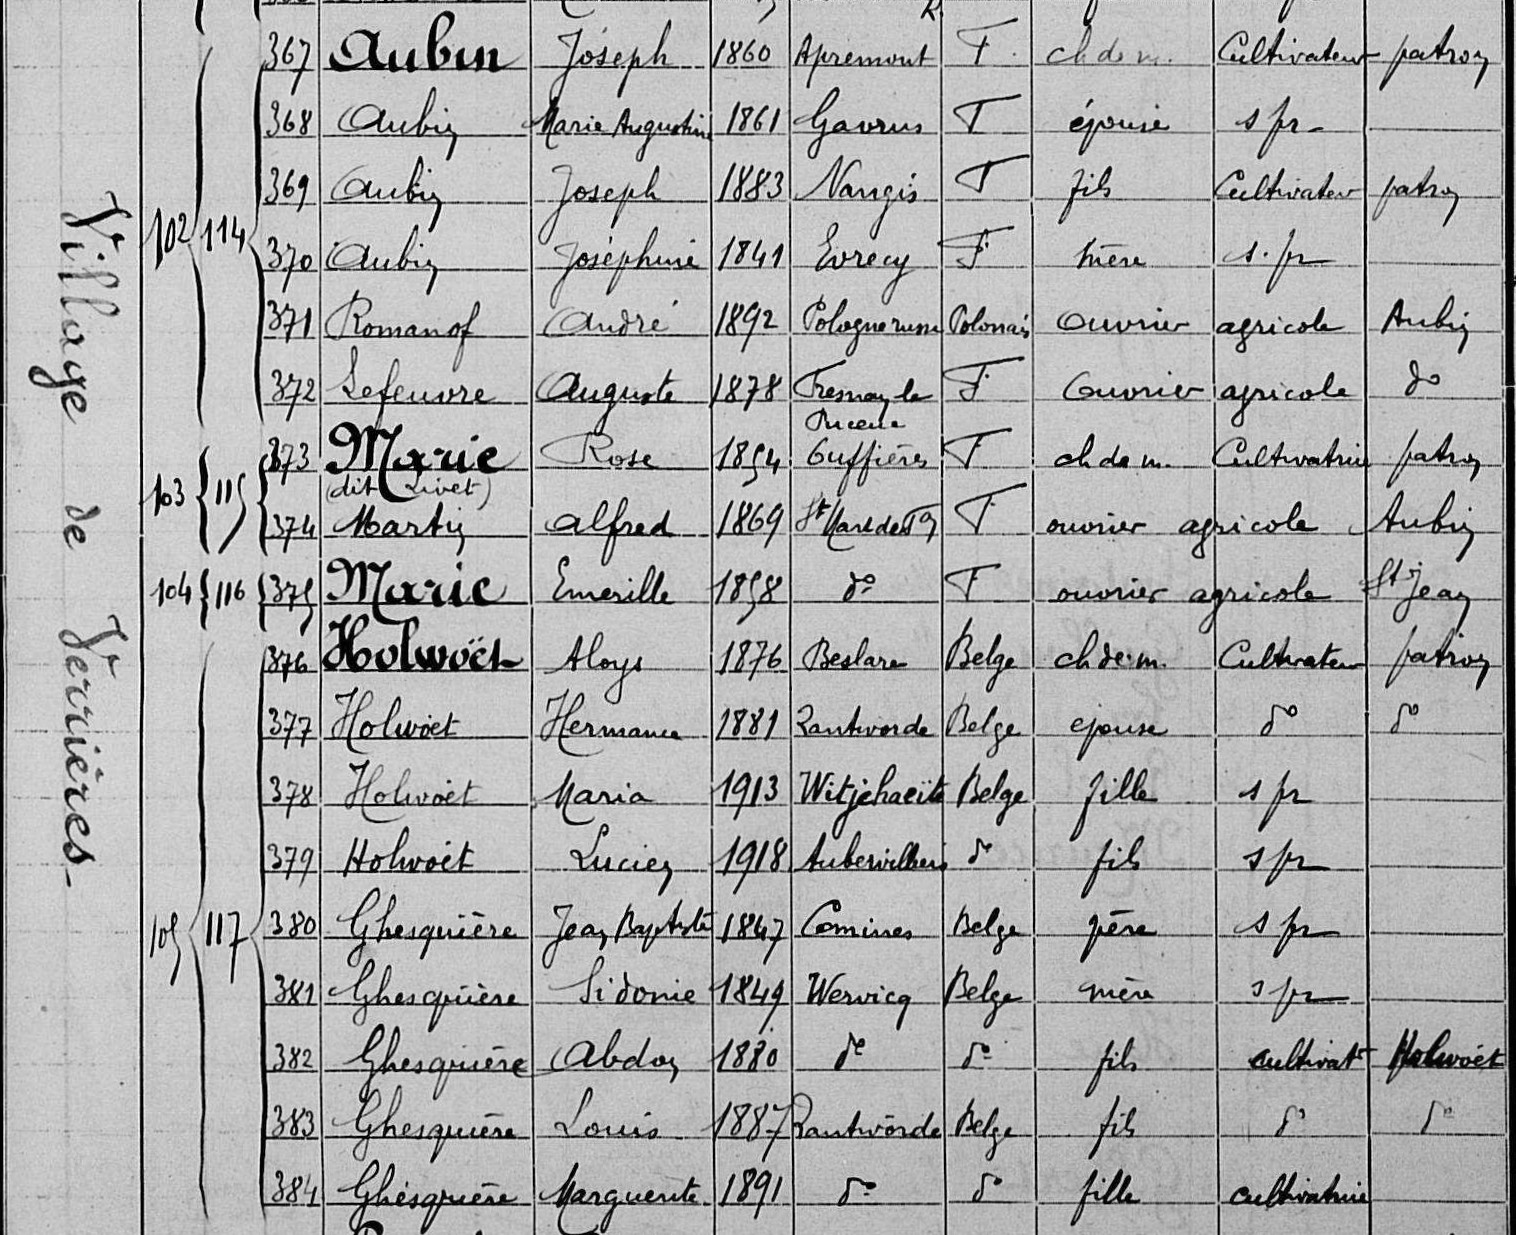 Village de Verrières
102 114
367 Aubin Joseph 1860 Apremont F. ch de m. Cultivateur patron
368 Aubin Marie Augustine 1861 Gavrus F épouse s pr
369 Aubin Joseph 1883 Nangis F fils Cultivateur patron
370 Aubin Joséphine 1841 Evrecy F mère s. pr
371 Romanof André 1892 Pologne russe Polonais Ouvrier agricole Aubin
372 Lefeuvre Auguste 1878 Fresnay le F Ouvrier agricole do
Puceux
103 115
373 Marie Rose 1854 Guffières F ch de m. Cultivatrice patron
(dit Livet)
374 Martin Alfred 1869 St F ouvrier agricole Aubin
104 116 375 Marie Emerille 1858 do F ouvrier agricole St Jean
105 117
376 Holwoët Aloys 1876 Beslare Belge ch de m. Cultivateur patron
377 Holwoët Hermance 1881 Zantvorde Belge epouse do do
378 Holwoët Maria 1913 Witjehaeïte Belge fille s pr
379 Holwoët Lucien 1918 Aubervilliers do fils s pr
380 Ghesquière Jean Baptiste 1847 Comines Belge père s pr
381 Ghesquière Sidonie 1849 Wervicq Belge mère s pr
382 Ghesquière Abdon 1880 do do fils cultivatr Holwoët
383 Ghesquière Louis 1887 Zantvorde Belge fils do do
384 Ghesquière Marguerite 1891 do do fille cultivatrice